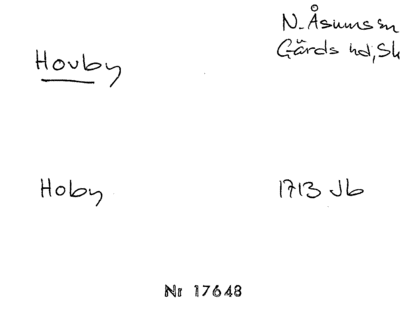 N. Åsums sn
Gärds hd, Sk
Hovby
Hoby
1713 Jb
Nr 17648